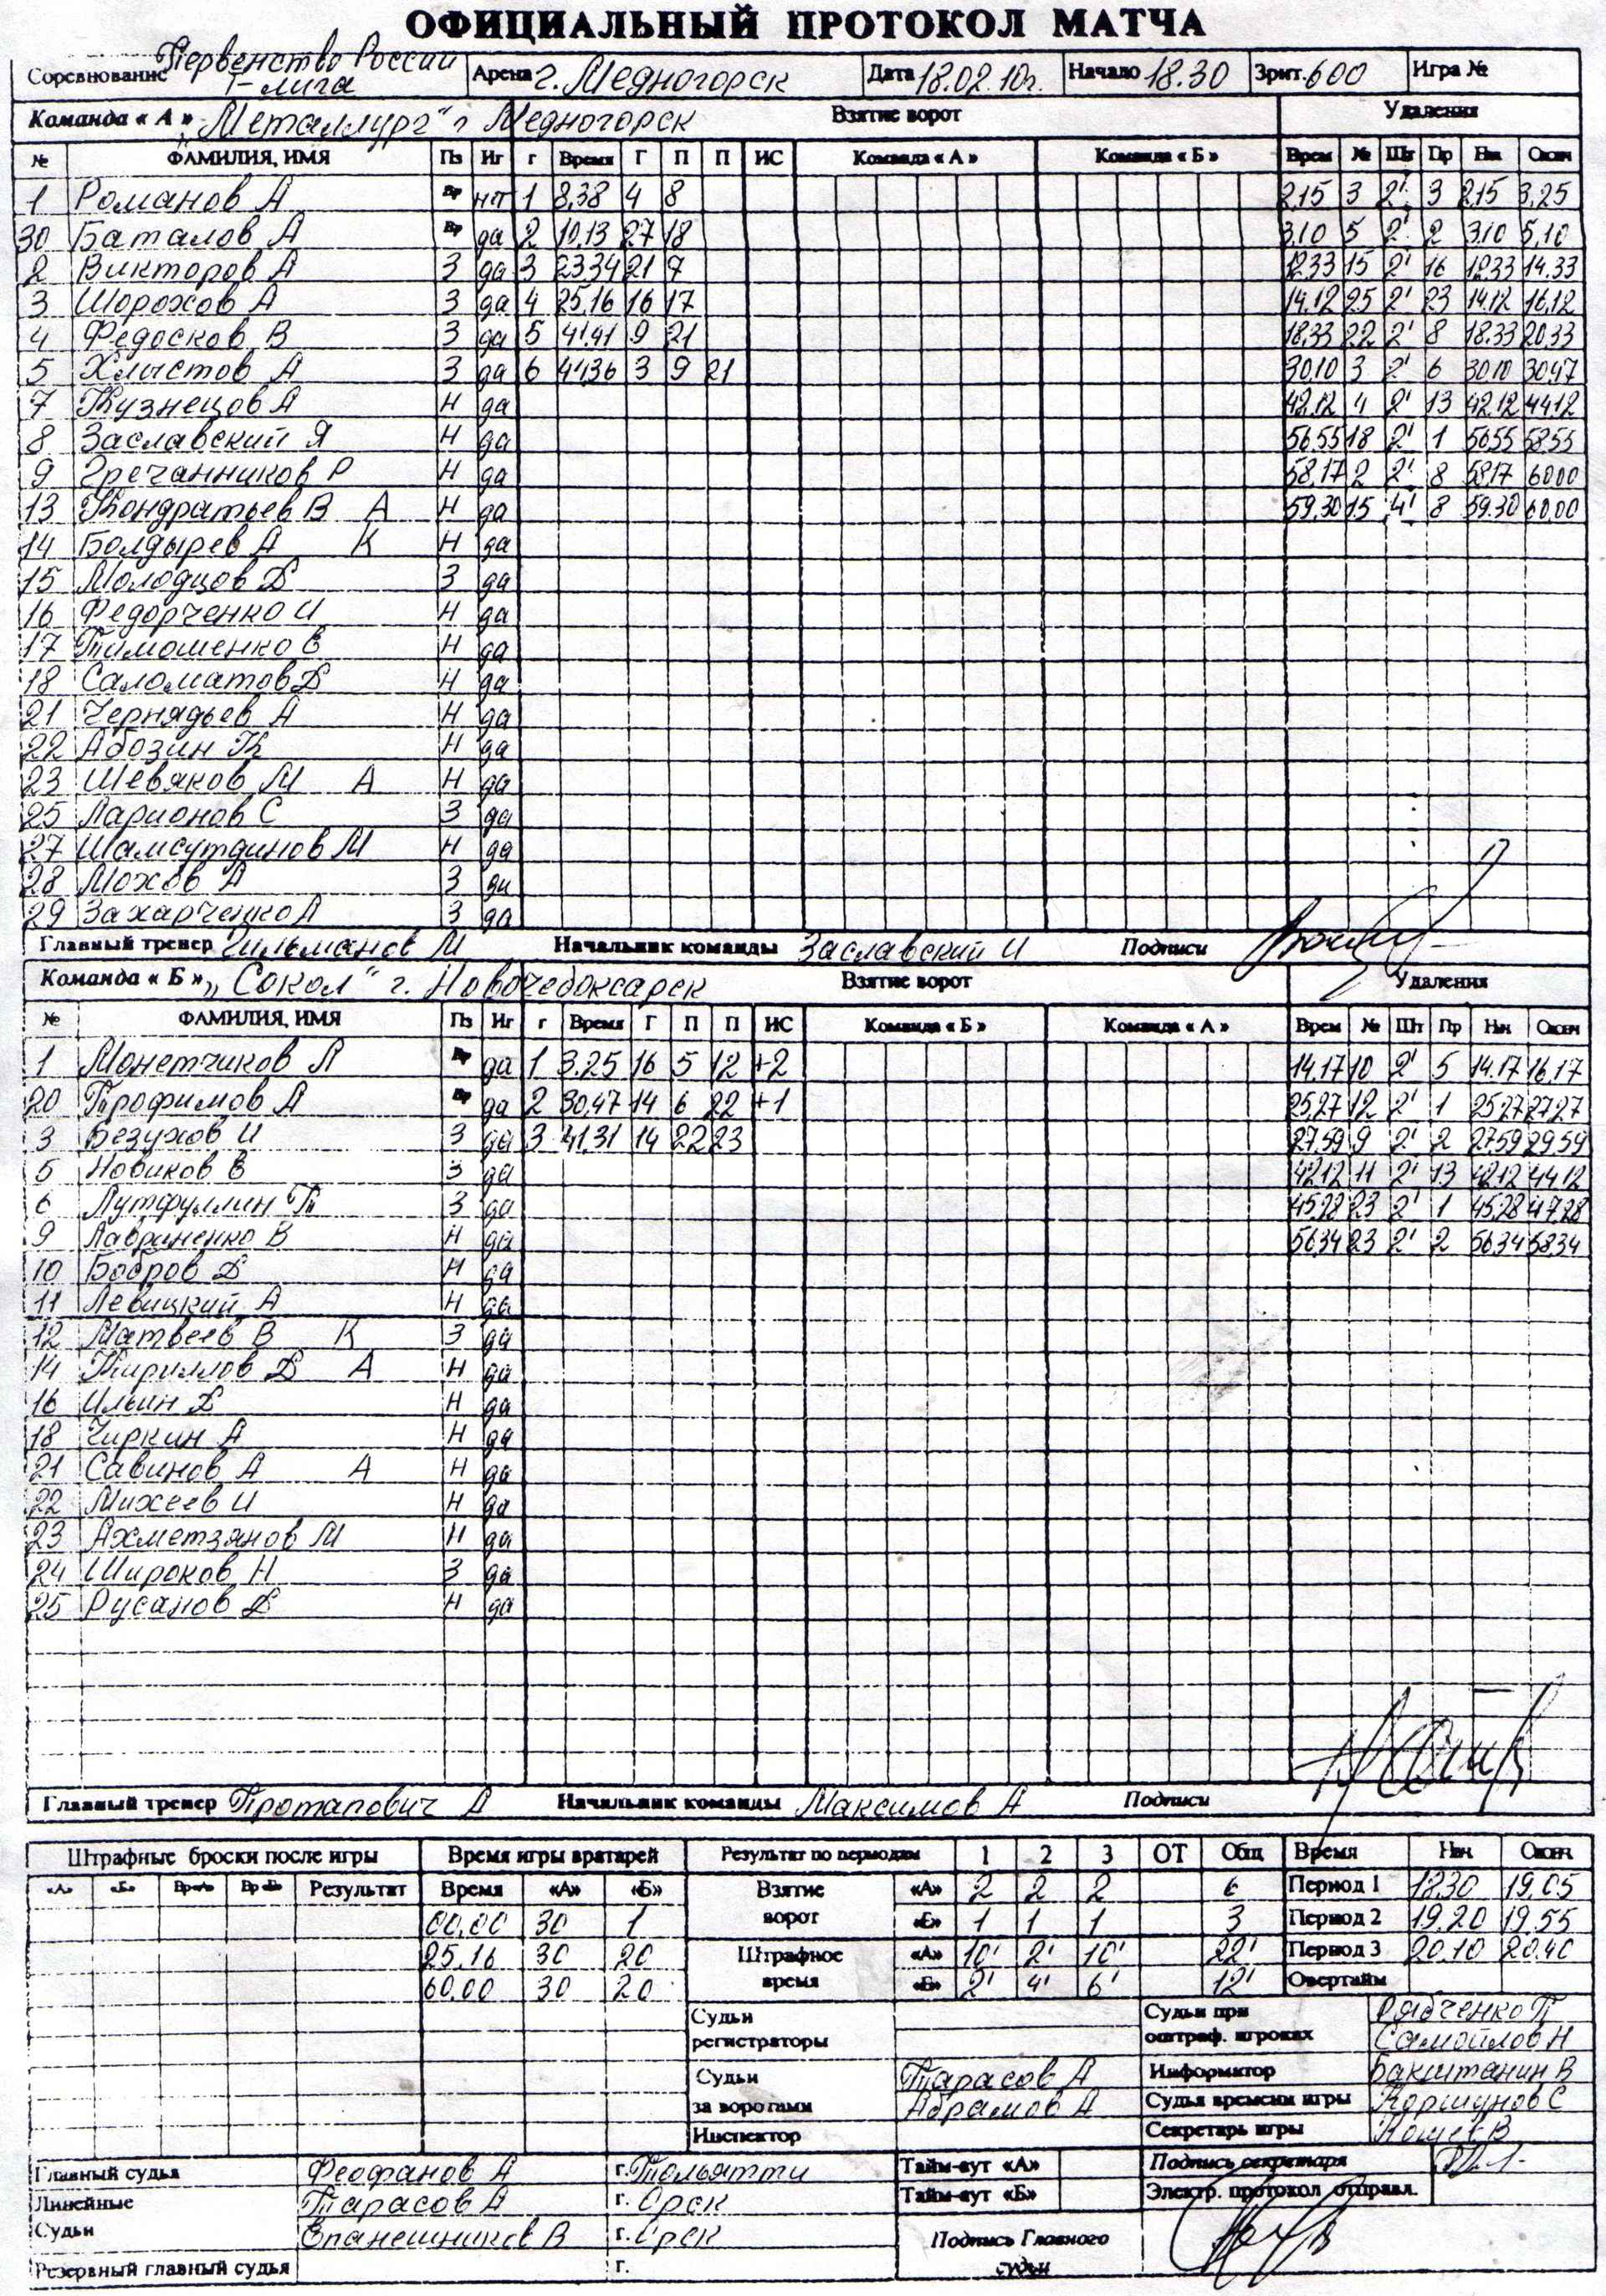 ОФИЦИАЛЬНЫЙ ПРОТОКОЛ МАТЧА
Соревнование Первенство России I-лига Арена г. Медногорск Дата 18.02.10г. Начало 18.30 Зрит. 600 Игра №
Команда « А » „Металлург" г Медногорск Взятие ворот Удаления
№ ФАМИЛИЯ, ИМЯ Пз Иг г Время Г П П ИС Команда « А » Команда « Б » Врем № Шт Пр Нач Оконч
1 Романов А Вр нт 1 8,38 4 8 2,15 3 2' 3 2,15 3,25
30 Баталов А Вр да 2 10,13 27 18 3,10 5 2' 2 3,10 5,10
2 Викторов А З да 3 23,34 21 7 12,33 15 2' 16 12,33 14,33
3 Шорохов А З да 4 25,16 16 17 14,12 25 2' 23 14,12 16,12
4 Федосков В З да 5 41,41 9 21 18,33 22 2' 8 18,33 20,33
5 Хлыстов А З да 6 47,36 3 9 21 30,10 3 2' 6 30,10 30,47
7 Кузнецов А Н да 42,12 4 2' 13 42,12 44,12
8 Заславский Я Н да 56,55 18 2' 1 56,55 58,55
9 Гречанников Р Н да 58,17 2 2' 8 58,17 60,00
13 Кондратьев В А Н да 59,30 15 4' 8 59,30 60,00
14 Болдырев А К Н да
15 Молодцов Д З да
16 Федорченко И Н да
17 Тимошенко Е Н да
18 Саломатов Д Н да
21 Чернядьев А Н да
22 Абозин К Н да
23 Шевяков М А Н да
25 Ларионов С З да
27 Шамсутдинов М Н да
28 Мохов А З да
29 Захарченко А З да
Главный тренер Гильманов М Начальник команды Заславский И Подписи
Команда « Б » „Сокол" г. Новочебоксарск Взятие ворот Удаления
№ ФАМИЛИЯ, ИМЯ Пз Иг г Время Г П П ИС Команда « Б » Команда « А » Врем № Шт Пр Нач Оконч
1 Монетчиков Л Вр да 1 3.25 16 5 12 +2 14.17 10 2' 5 14.17 16,17
20 Трофимов А Вр да 2 30,47 14 6 22 +1 25,27 12 2' 1 25,27 27,27
3 Безухов И З да 3 41,31 14 22 23 27,59 9 2' 2 27,59 29,59
5 Новиков Е З да 42,12 11 2' 13 42,12 44,12
6 Лутфуллин Т З да 45,28 23 2' 1 45,28 47,28
9 Лавриненко В Н да 56,34 23 2' 2 56,34 58,34
10 Бобров Д Н да
11 Левицкий А Н да
12 Матвеев В К З да
14 Кириллов Д А Н да
16 Ильин Д Н да
18 Чиркин А Н да
21 Савинов А А Н да
22 Михеев И Н да
23 Ахметзянов М Н да
24 Широков Н З да
25 Русанов Д Н да
Главный тренер Протапович А Начальник команды Максимов А Подписи
Штрафные броски после игры Время игры вратарей Результат по периодам 1 2 3 ОТ Общ Время Нач Оконч
«А» «Б» Вр«А» Вр«Б» Результат Время «А» «Б» Взятие ворот «А» 2 2 2 6 Период 1 18.30 19.05
00,00 30 1 «Б» 1 1 1 3 Период 2 19.20 19.55
25,16 30 20 Штрафное время «А» 10' 2' 10' 22' Период 3 20.10 20.40
60,00 30 20 «Б» 2' 4' 6' 12' Овертайм
Судьи регистраторы Судьи при оштраф. игроках Рябченко П
Самойлов Н
Судьи за воротами Тарасов А Информатор Бакштанин В
Абрамов А Судья времени игры Коршунов С
Инспектор Секретарь игры Кощеев В
Главный судья Феофанов А г. Тольятти Тайм-аут «А» Подпись секретаря
Линейные Тарасов А г. Орск Тайм-аут «Б» Электр. протокол отправл.
Судьи Опанешников В г. Орск Подпись Главного судьи
Резервный главный судья г.